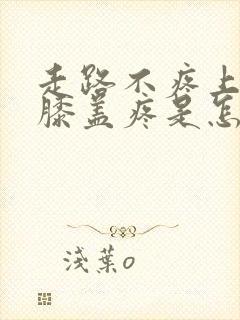 走路不疼上
膝盖疼是怎
浅葉o